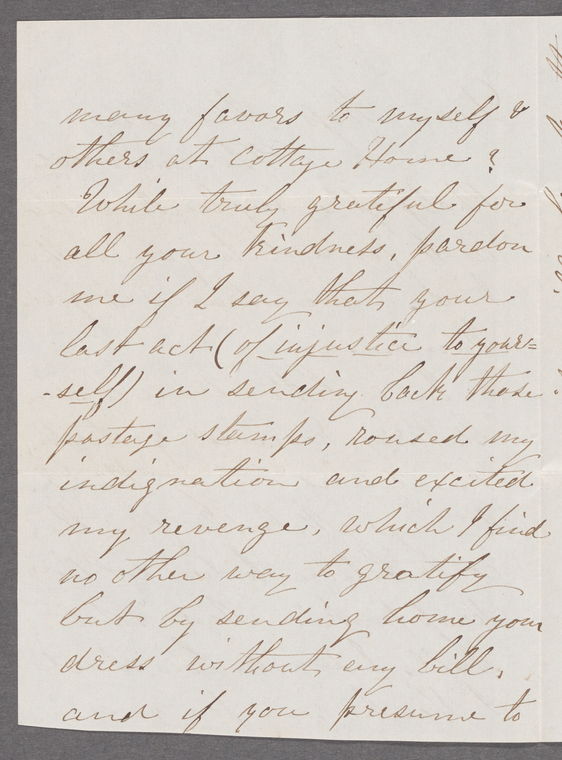 many favors to myself &
others at Cottage Home?
While truly grateful for
all your kindness, pardon
me if I say that your
last act (of injustice to your=
-self) in sending back those
postage stamps, roused my
indignation and excited
my revenge, which I find
no other way to gratify
but by sending home your
dress without any bill,
and if you presume to